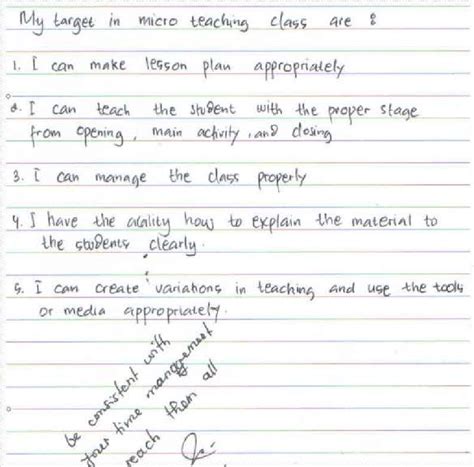 My target in micro teaching class are :
1. I can make lesson plan appropriately
2. I can teach the student with the proper stage
from opening, main activity, and closing
3. I can manage the class properly
4. I have the how to explain the material to
the students clearly.
5. I can create variations in teaching and use the tools
or media appropriately.
be consistent with
your time management
reach them all